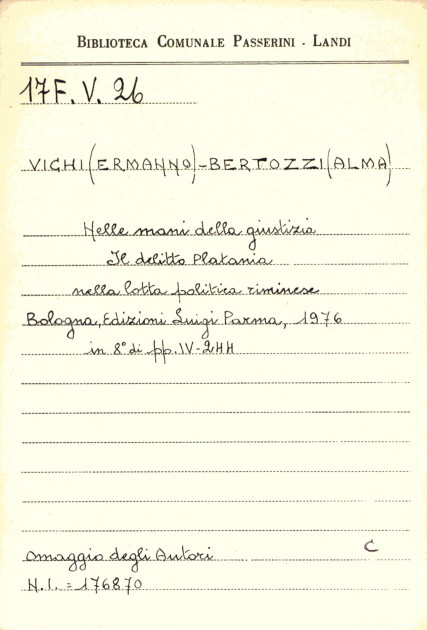 BIBLIOTECA COMUNALE PASSERINI - LANDI
17F. V. 26
VICHI (ERMANNO) - BERTOZZI (ALMA)
Nelle mani della giustizia
Il delitto Platania
nella lotta politica riminese
Bologna, Edizioni Luigi Parma, 1976
in 8° di pp. IV-244
Omaggio degli Autori C
N.I. = 176870